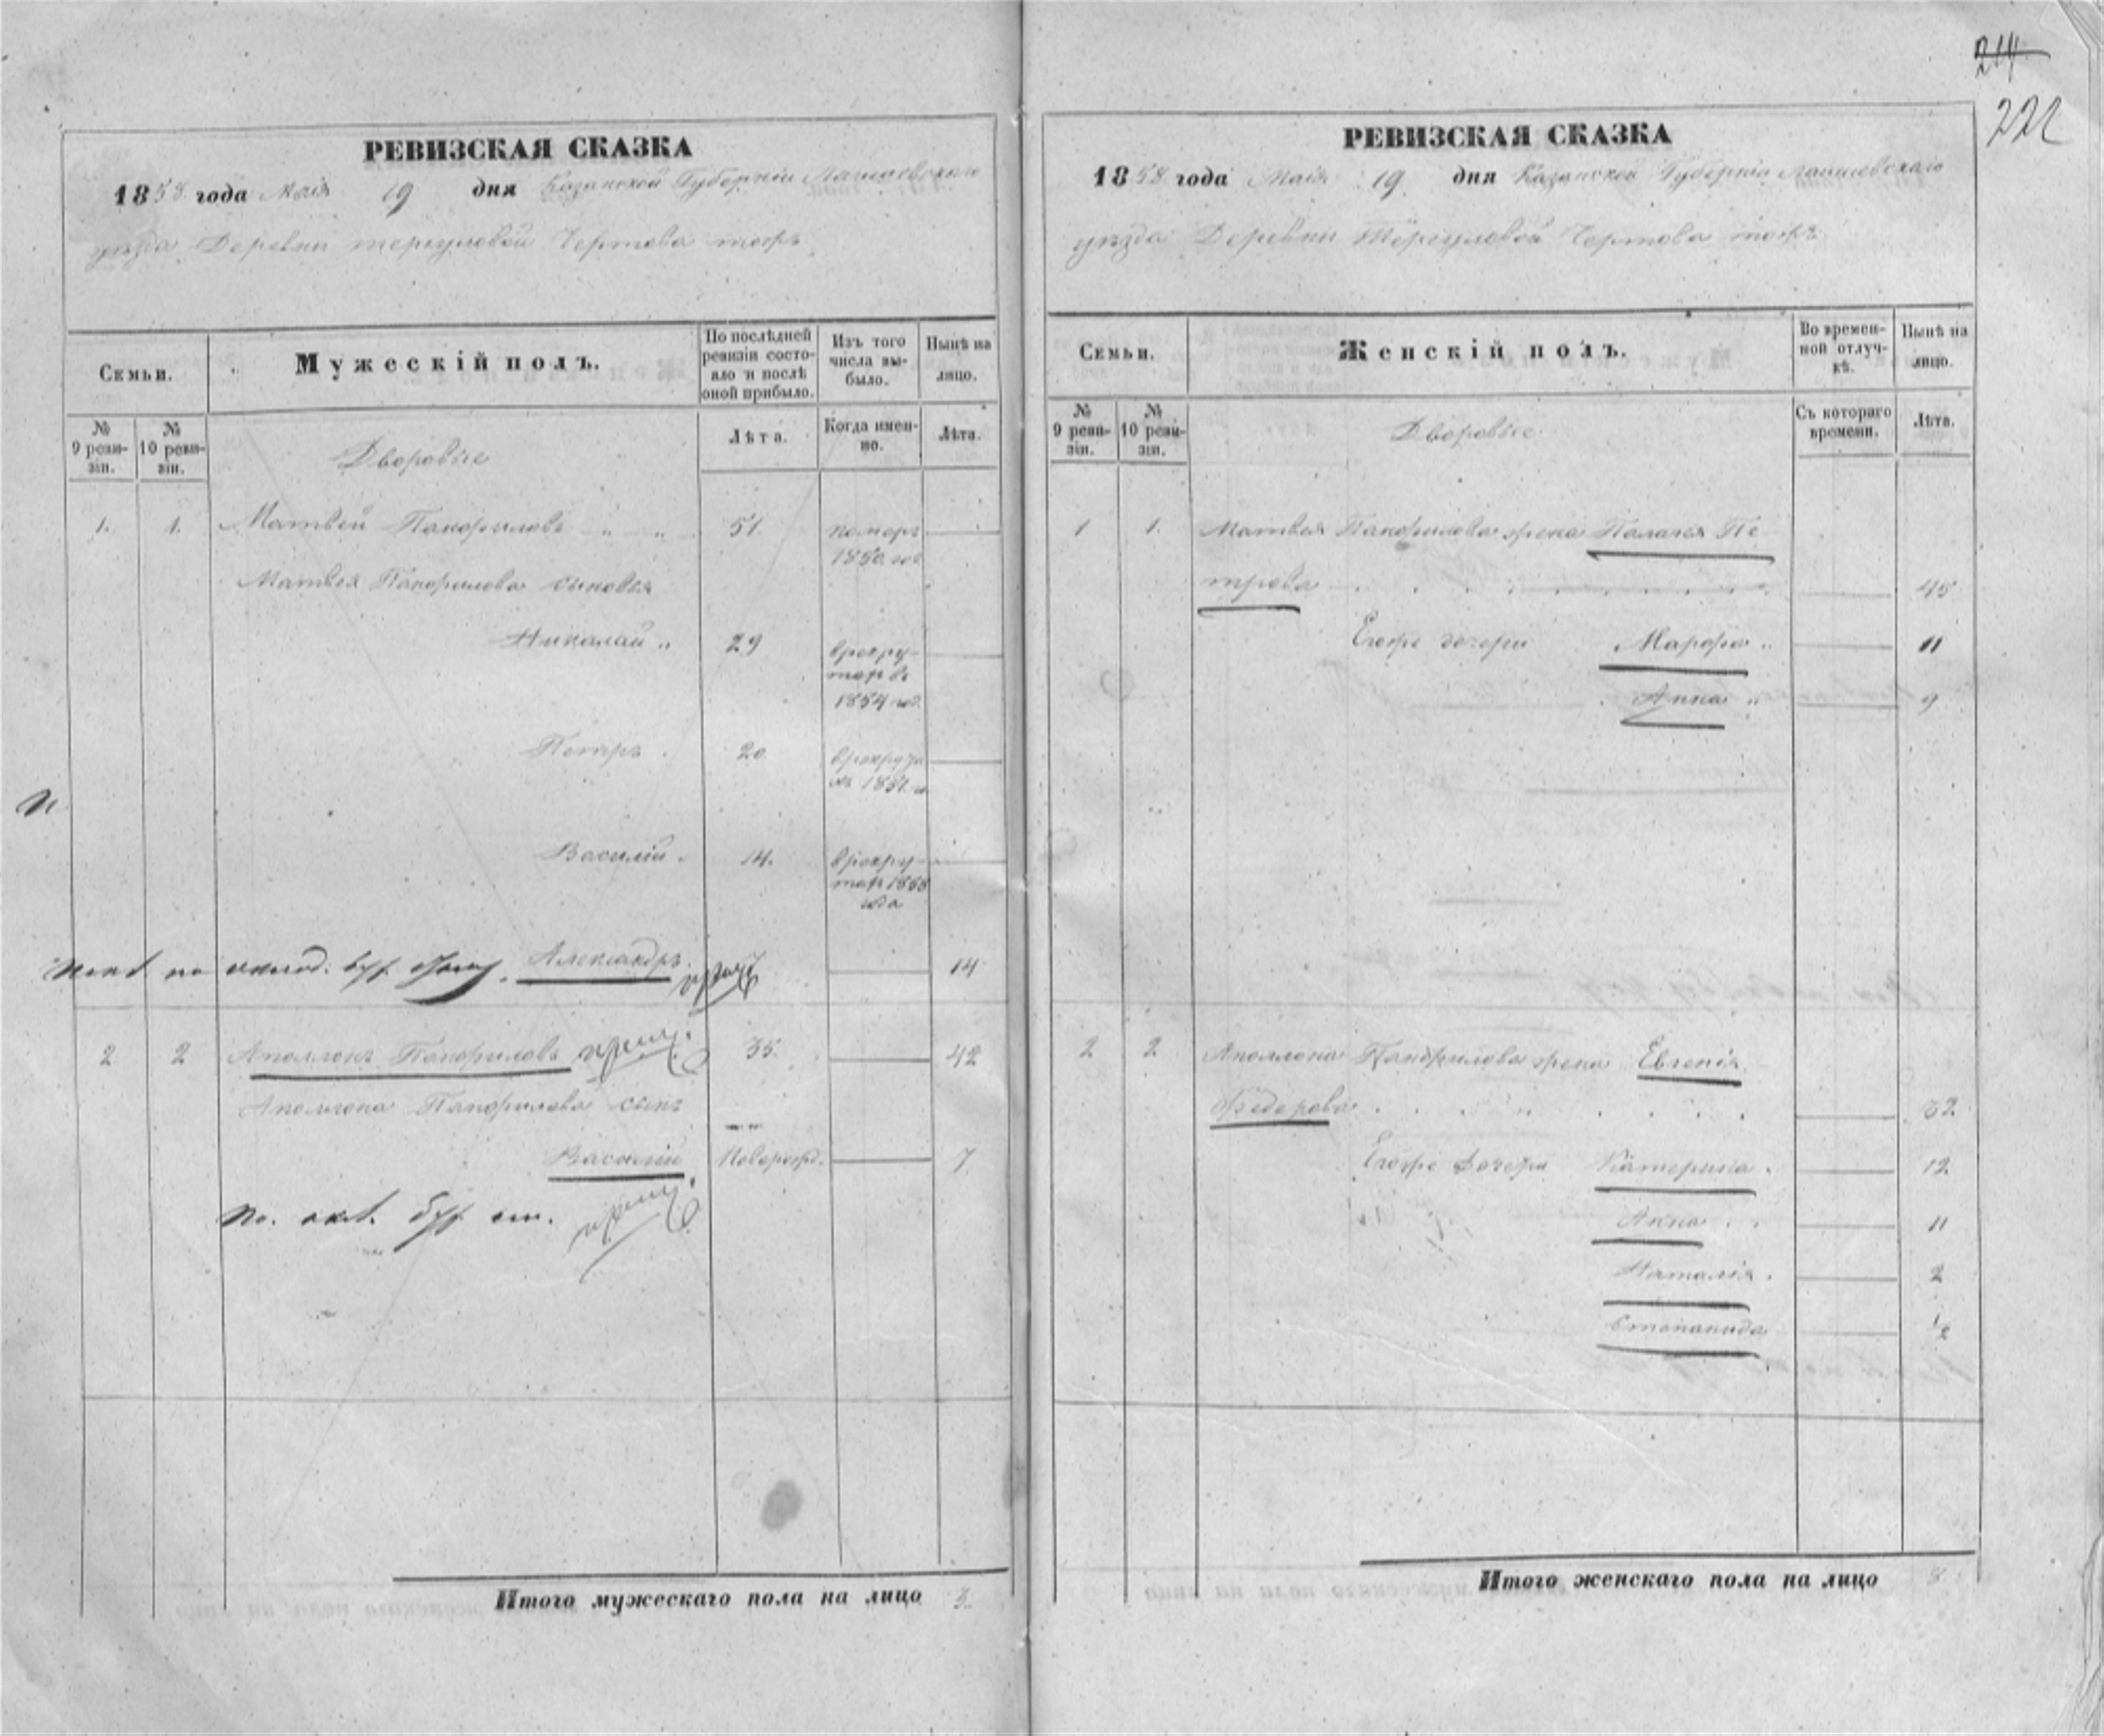 214
222
РЕВИЗСКАЯ СКАЗКА
1858 года Маія 19 дня Казанской Губерніи Лаишевскаго
уѣзда Деревни Чертова тожъ
Семьи.
Мужескій полъ.
По послѣдней ревизіи состояло и послѣ оной прибыло.
Изъ того числа выбыло.
Нынѣ на лицо.
№ 9 ревизіи.
№ 10 ревизіи.
Лѣта.
Когда именно.
Лѣта.
Дворовые
1. 1. Матвей Панфиловъ 51. померъ 1850 год
Матвея Панфилова сыновья
Николай 29 в рекру-
тахъ въ
1854 год.
Петръ 20 в рекрута
хъ 1851 г
Василій 14. в рекру-
тахъ 1858
года
Александръ 7 14
2 2 Аполлонъ Панфиловъ 35. 42
Аполлона Панфилова сынъ
Василій Новорожд. 7
Итого мужескаго пола на лицо 3.
РЕВИЗСКАЯ СКАЗКА
1858 года Маія 19 дня Казанской Губерніи Лаишевскаго
уѣзда Деревни Чертова тожъ
Семьи.
Женскій полъ.
Во временной отлучкѣ.
Нынѣ на лицо.
№ 9 ревизіи.
№ 10 ревизіи.
Съ котораго времени.
Лѣта.
Дворовые
1 1. Матвея Панфилова жена Палагея Пе-
трова 45
Егоже дочери Марфа 11
Анна 9
2 2 Аполлона Панфилова жена Евгенія
Федорова 32
Егоже Дочери Катерина 12
Анна 11
Наталія 2
Степанида ½
Итого женскаго пола на лицо 8.